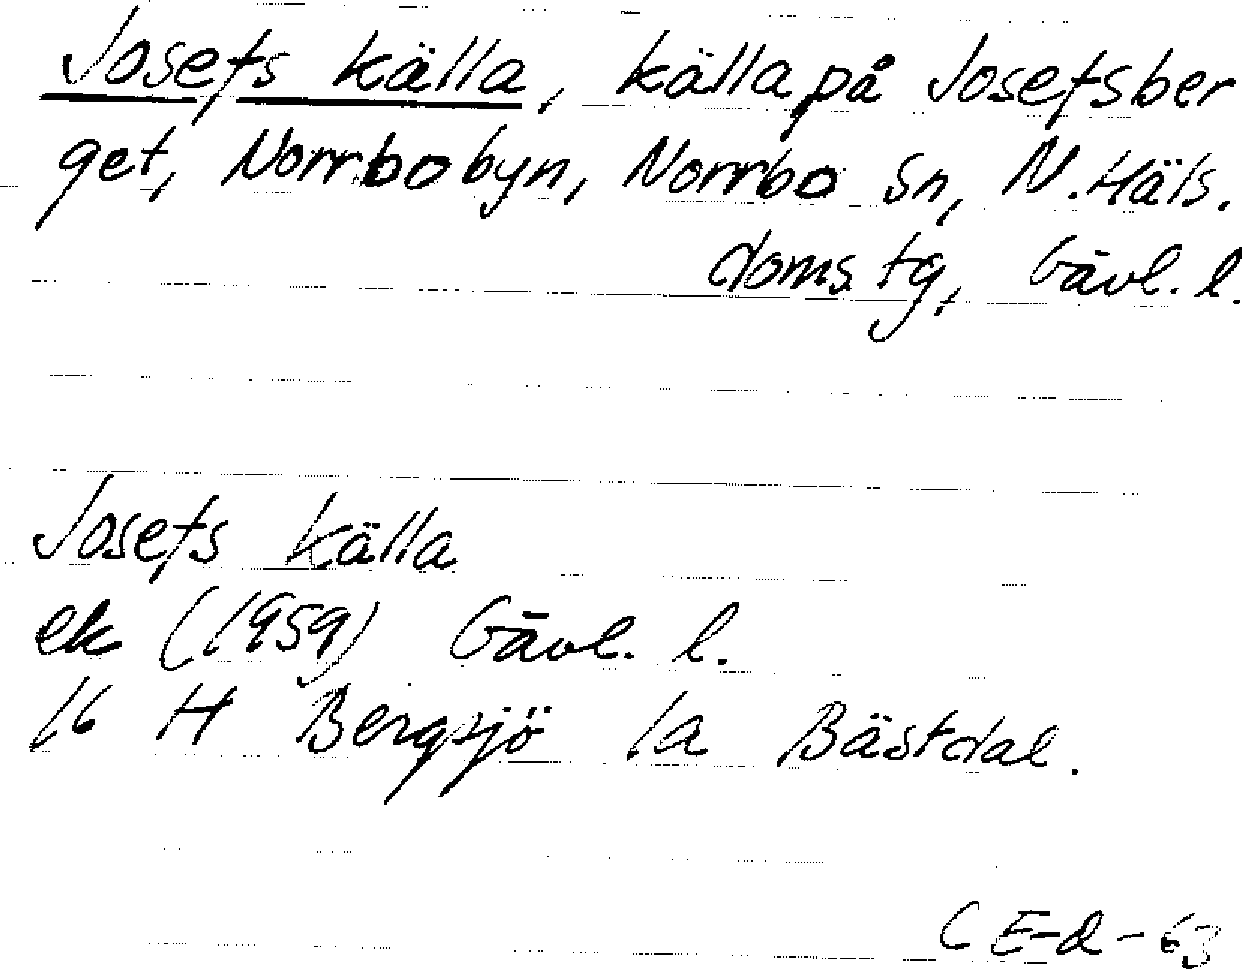 Josefs källa, källa på Josefsber
get, Norrbobyn, Norrbo sn, N. Häls.
doms. tg, Gävl. l.
Josefs källa
ek (1959) Gävl. l.
16 H Bergsjö 1a Bästdal.
CE-d-63